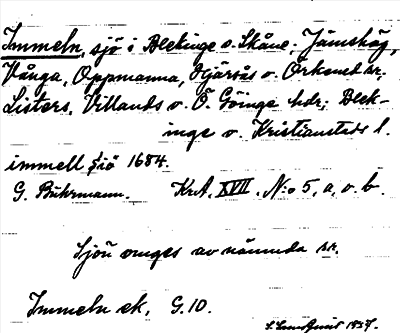 Immeln, sjö i Blekinge o. Skåne; Jämshög,
Vånga, Oppmanna, Hjärsås o. Örkened snr.
Listers, Villands o. Ö. Göinge hdr; Blek-
inge o. Kristianstads l.
immell Siö 1684.
G. Buhrmann. KrA, XVII, N:o 5, a, o. b.
Sjön omges av nämnda snr.
Immeln ek, G.10.